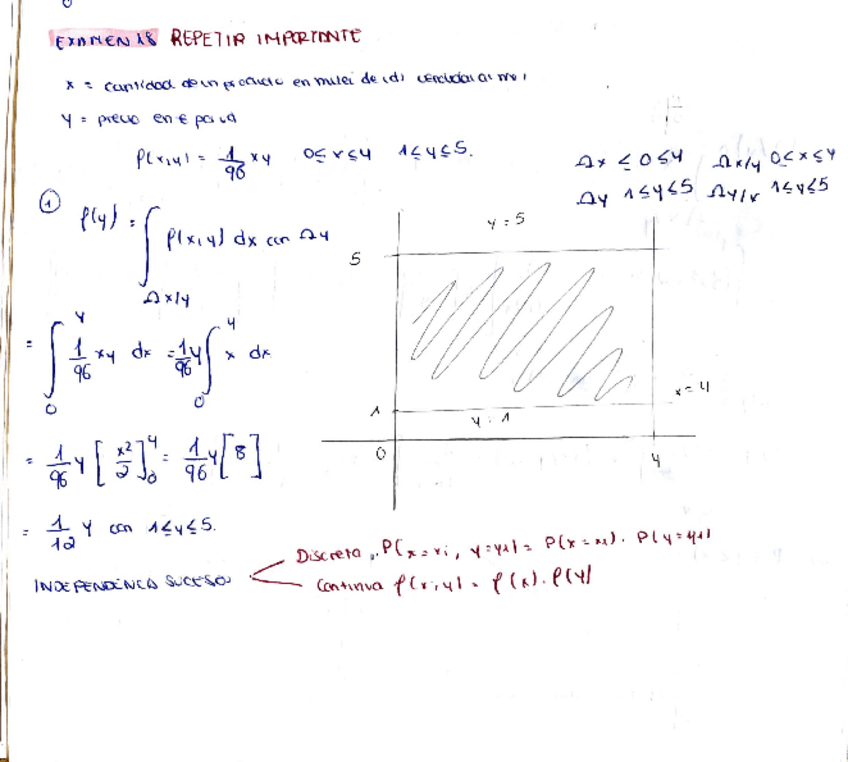 EXAMEN 18 REPETIR IMPORTANTE
x = cantidad de un producto en miles de uds vendidas al mes
y = precio en € por ud
f(x,y) = 1/96 xy 0≤x≤4 1≤y≤5.
Ωx ≤0≤4 Ωx/y 0≤x≤4
Ωy 1≤y≤5 Ωy/x 1≤y≤5
① f(y) = ∫Ωx/y f(x,y) dx con Ωy
= ∫₀⁴ 1/96 xy dx = 1/96 y ∫₀⁴ x dx
= 1/96 y [x²/2]₀⁴ = 1/96 y [8]
= 1/12 y con 1≤y≤5.
y = 5
5
x = 4
1
y = 1
0
4
INDEPENDENCIA SUCESOS
Discreta P(x=xi, y=yi) = P(x=xi) · P(y=yi)
Continua f(x,y) = f(x) · f(y)